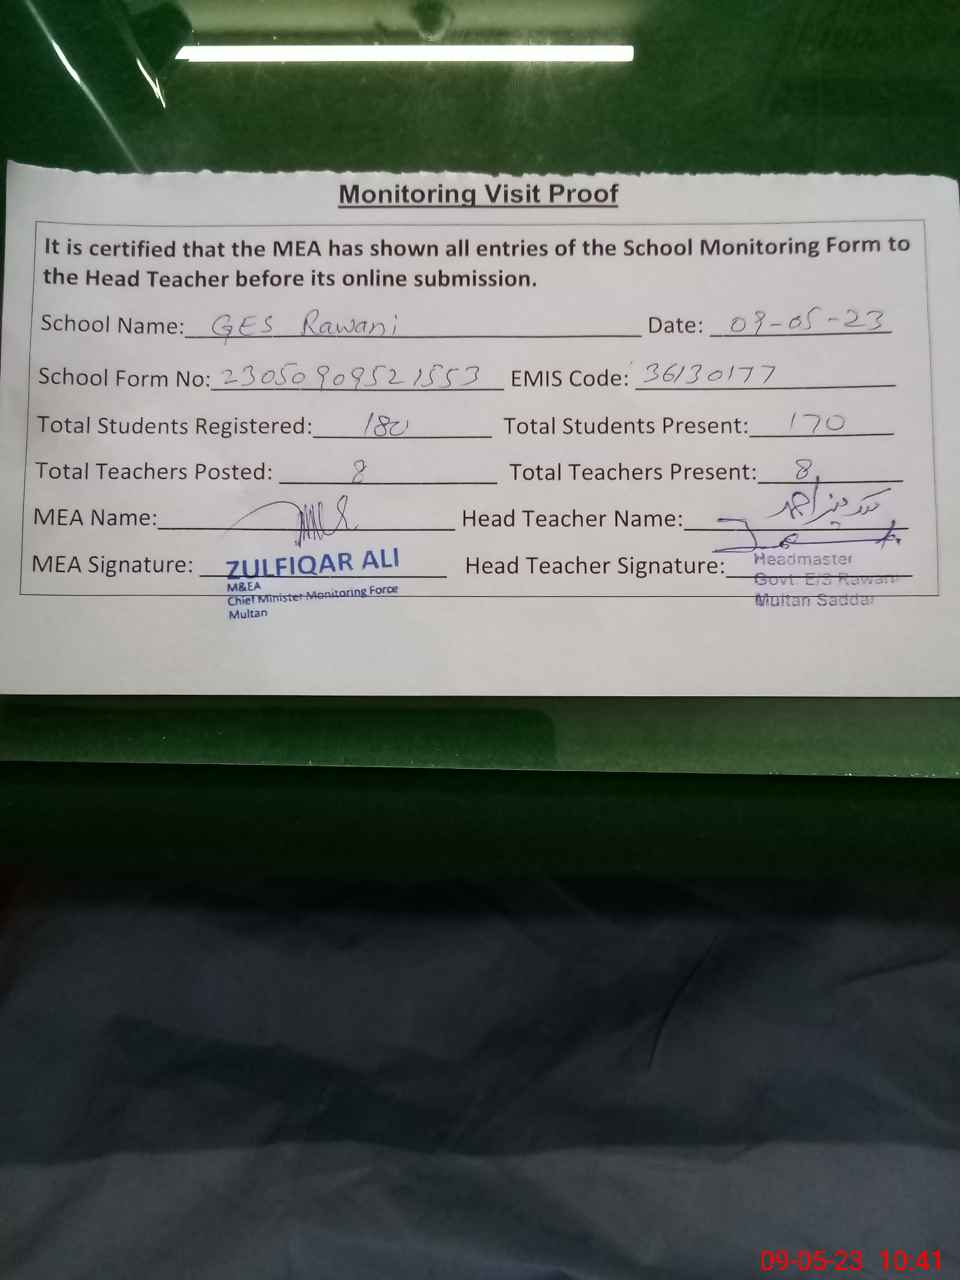 Monitoring Visit Proof
It is certified that the MEA has shown all entries of the School Monitoring Form to
the Head Teacher before its online submission.
School Name: GES Rawani Date: 09-05-23
School Form No: 23050909521553 EMIS Code: 36130177
Total Students Registered: 180 Total Students Present: 170
Total Teachers Posted: 8 Total Teachers Present: 8
MEA Name: Head Teacher Name:
MEA Signature: ZULFIQAR ALI Head Teacher Signature: Headmaster
M&EA Govt. E/S Rawani
Chief Minister Monitoring Force Multan Saddar
Multan
09-05-23 10:41